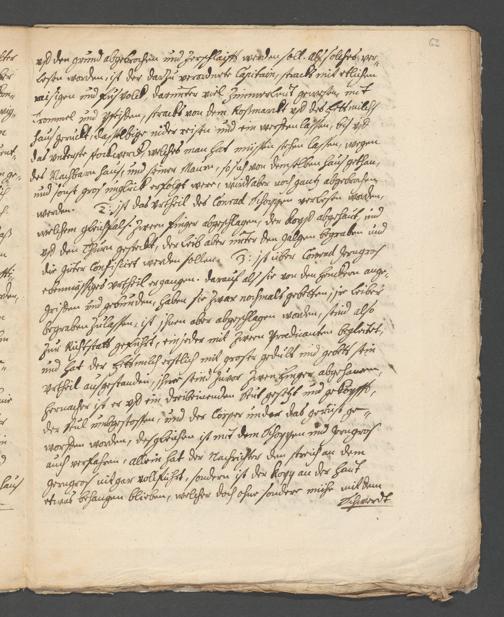 62
vf den grund abgebrochen und zerschlaifft werden soll. als solches ver-
lesen worden, ist der darzu verordnete Capitain, sambt mit etlichen
raisigen und fus volck darunter viel Zimmerleut gewesen, mit
Trommel und Pfeiffen, stracks von dem Rossmarckt vf des Fettmilch
haus geruckt, dasselbige nider reissen und ein werffen lassen, bis vf
das unterste stockwerck, welches man hat müssen stehen lassen, wegen
des Nachbarn haus, und seiner Mauren, so sich von demselben haus gethan,
und sonst gros unglück erfolgt were, wurd aber noch gantz abgebrochen
werden. 2: ist das Urtheil des Conrad Schoppen verlesen worden,
welchem gleichfals zween finger abgeschlagen, der Kopf abgehaut, und
vf den Thurn gesteckt, der leib aber unter den galgen begraben und
die güter Confiscirt werden sollen. 3: ist über Conrad Gerngros
ebenmässiges urtheil ergangen. darauf als sie von den henckern ange-
griffen und gebunden, haben sie zwar nochmals gebetten, ihre leiber
begraben zulassen, ist ihnen aber abgeschlagen worden, seind also
zur Richtstatt geführt, ein jeder mit zween Predicanten begleitet,
und hat der Fettmilch erstlich mit grosser gedult und gebett sein
Urtheil ausgestanden, ihme seind zuvor zween finger abgehawen,
hernacher ist er vf ein dreibeinenden stul gesetzt und geköpfft,
der stul umbgestossen, und der Cörper under das gerüst ge-
worffen worden, desgleichen ist mit dem Schoppen und Gerngros
auch verfahren, allein hat der Nachrichter den streich an dem
Gerngros nit gar vollführt, sondern ist der Kopf an der haut
etwas behangen blieben, welcher doch ohne sondere mühe mit dem
Schwerdt